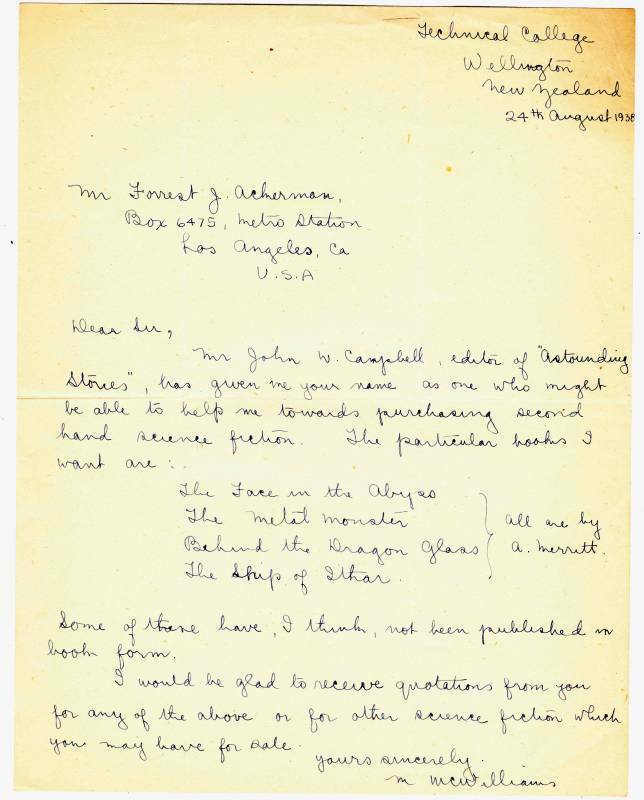 Technical College
Wellington
New Zealand
24th August 1938
Mr Forrest J. Ackerman,
Box 6475, Metro Station
Los Angeles, Ca
U.S.A
Dear Sir,
Mr John W. Campbell, editor of "Astounding
Stories", has given me your name as one who might
be able to help me towards purchasing second
hand science fiction. The particular books I
want are:.
The Face in the Abyss
The Metal Monster
Behind the Dragon Glass
The Ship of Ithar.
all are by
A. Merritt.
Some of these have, I think, not been published in
book form.
I would be glad to receive quotations from you
for any of the above or for other science fiction which
you may have for sale.
yours sincerely.
M McWilliams